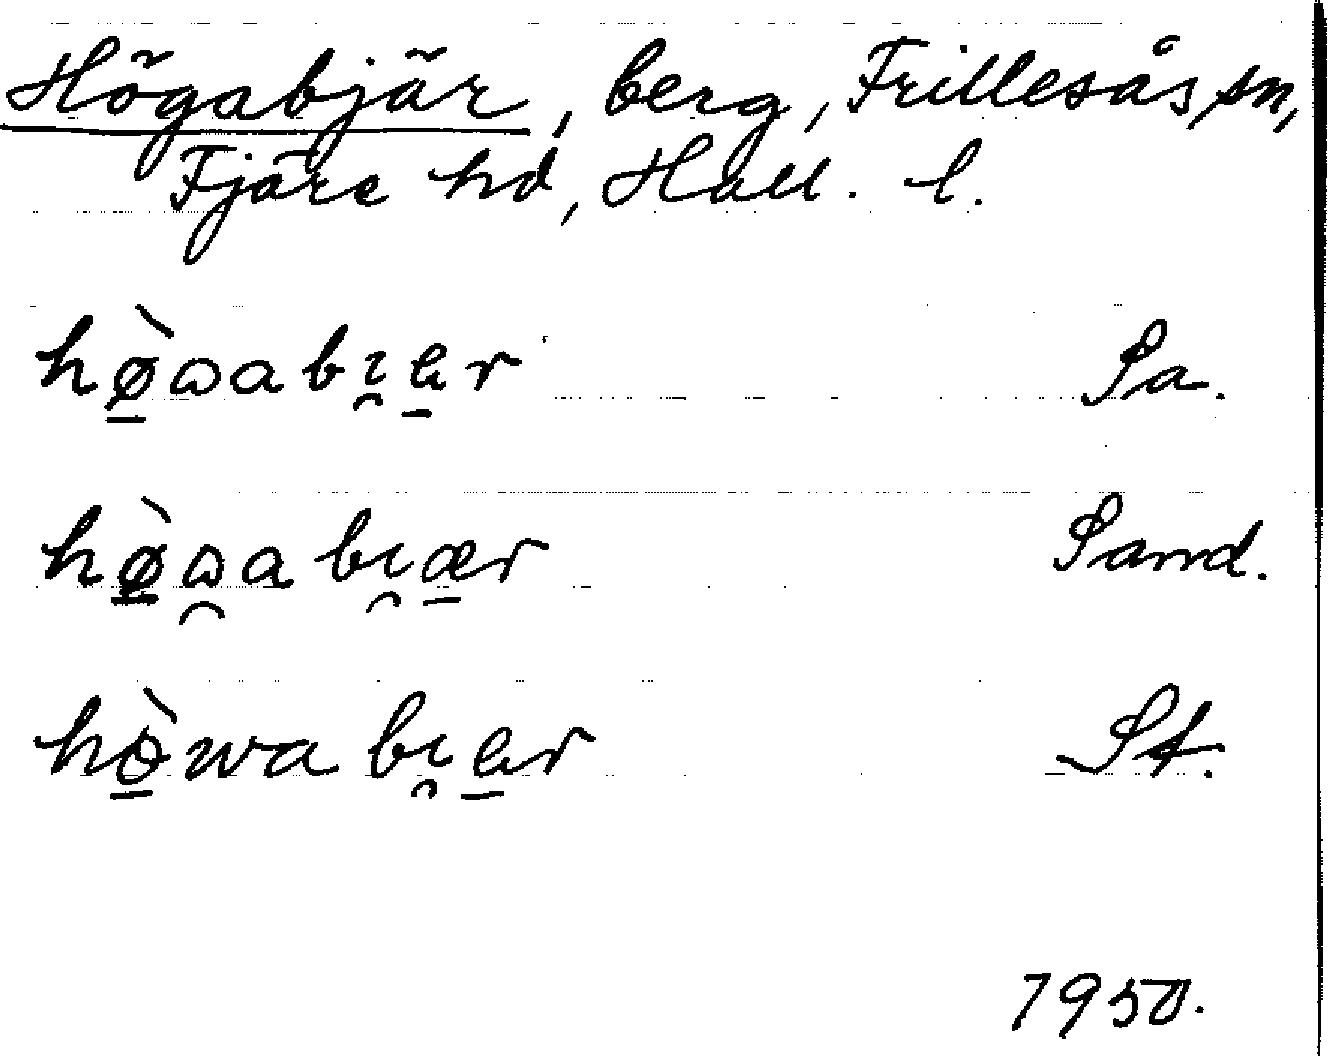 Högabjär, berg, Frillesås sn,
Fjäre hd, Hall. l.
hø̠̀ɷabı̯a̠r Sa.
hø̠̀ɷ̯abı̯æ̠r Sand.
hò̠wabı̯a̠r St.
1950.